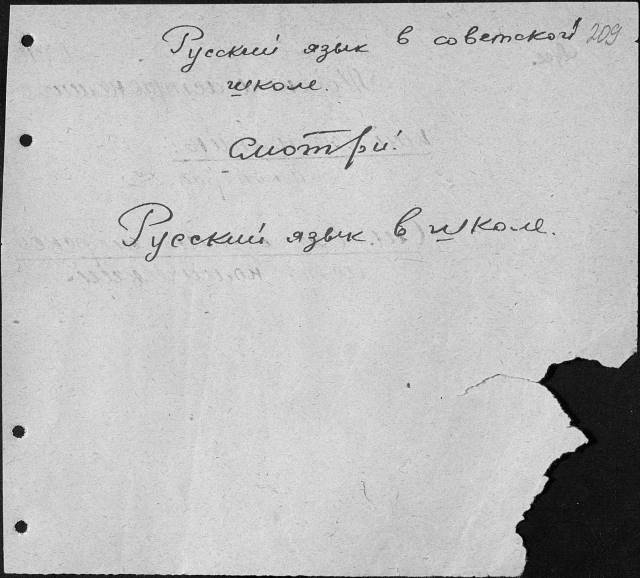 Русский язык в советской 209
школе.
Смотри:
Русский язык в школе.